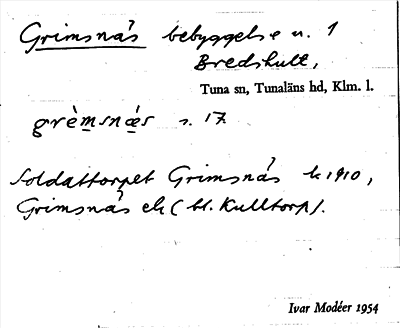 Grimsnäs bebyggelse u. 1
Bredhult,
Tuna sn, Tunaläns hd, Klm. l.
grèmsnæ̀s s. 17
Soldattorpet Grimsnäs k 1910,
Grimsnäs ek (bl. Kulltorp).
Ivar Modéer 1954